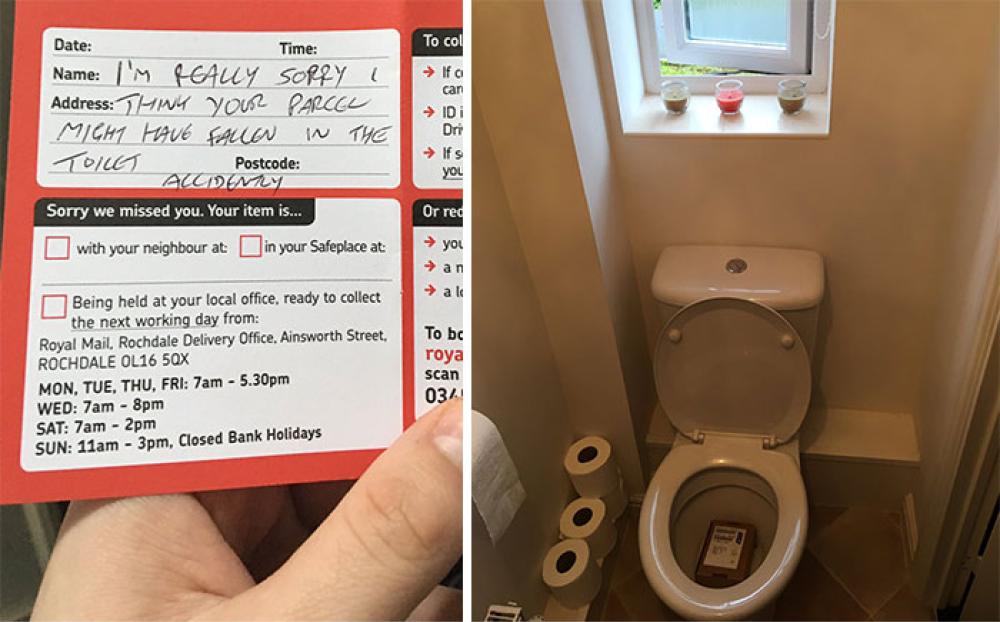 Date: Time:
Name: I'M REALLY SORRY I
Address: THINK YOUR PARCEL
MIGHT HAVE FALLEN IN THE
TOILET Postcode:
ACCIDENTLY
Sorry we missed you. Your item is...
with your neighbour at: in your Safeplace at:
Being held at your local office, ready to collect
the next working day from:
Royal Mail, Rochdale Delivery Office, Ainsworth Street,
ROCHDALE OL16 5QX
MON, TUE, THU, FRI: 7am - 5.30pm
WED: 7am - 8pm
SAT: 7am - 2pm
SUN: 11am - 3pm, Closed Bank Holidays
To col
If c
car
ID i
Dri
If s
you
Or red
you
a n
a lo
To bo
roya
scan
034